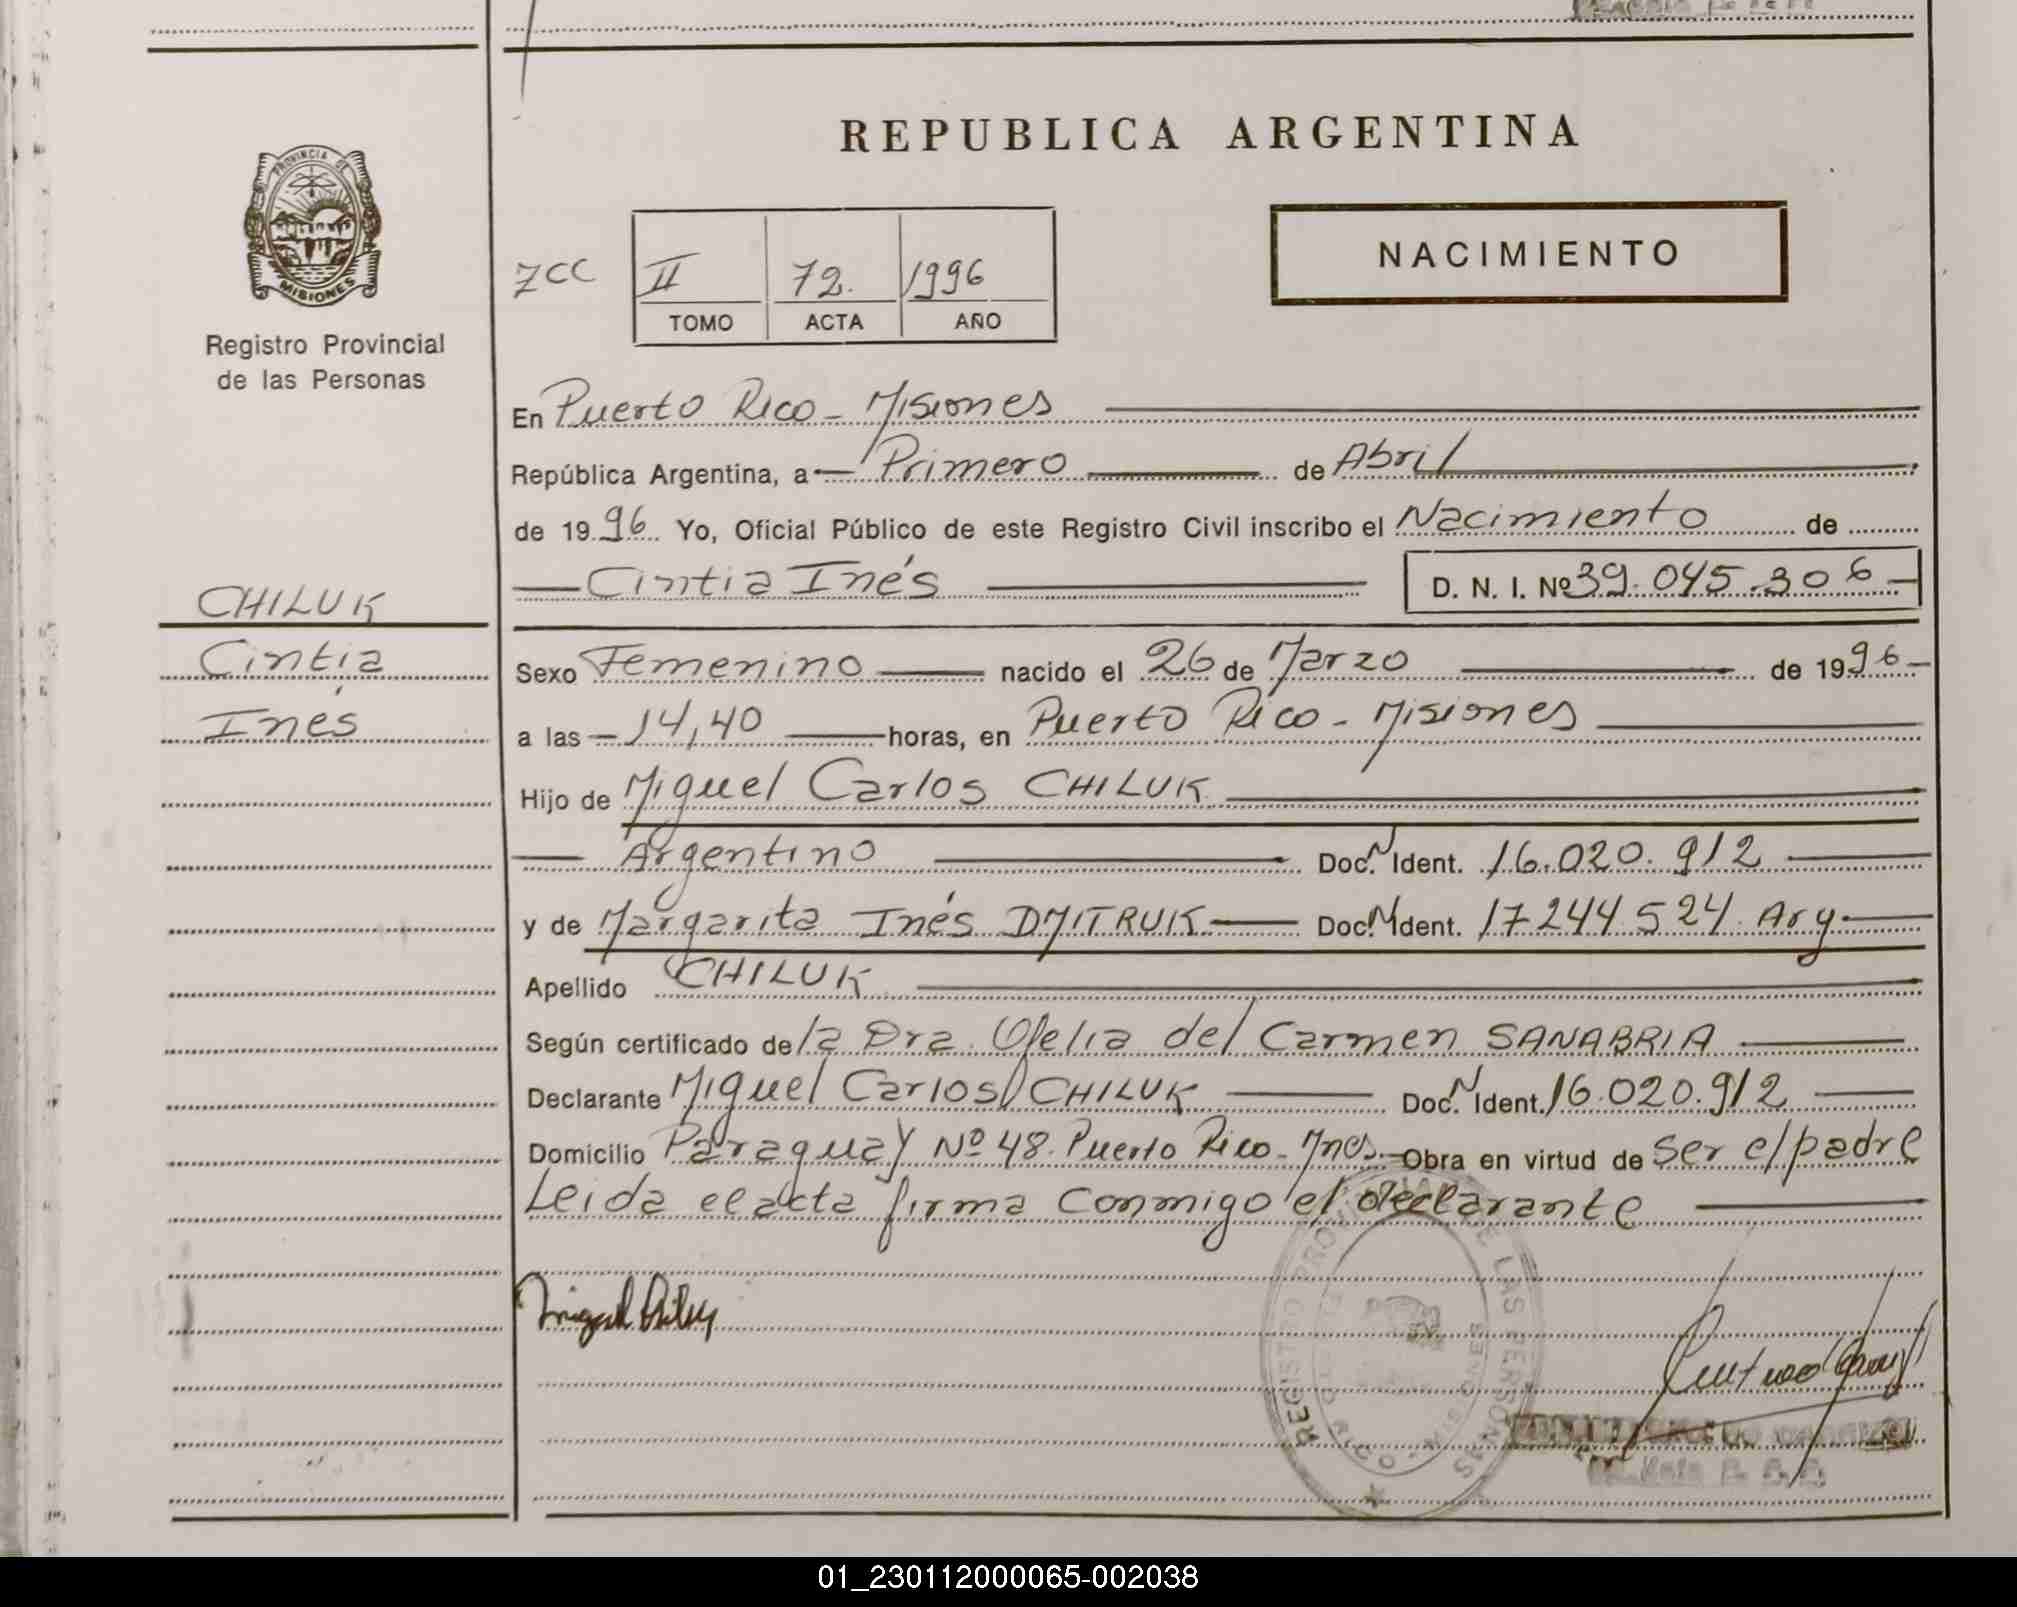 REPUBLICA ARGENTINA
PROVINCIA DE
MISIONES
Registro Provincial
de las Personas
NACIMIENTO
7CC II 72. 1996
TOMO ACTA AÑO
En Puerto Rico - Misiones
República Argentina, a Primero de Abril
de 1996 Yo, Oficial Público de este Registro Civil inscribo el Nacimiento de
Cintia Inés D. N. I. Nº 39.045.306
CHILUK
Cintia
Inés
Sexo Femenino nacido el 26 de Marzo de 1996
a las 14,40 horas, en Puerto Rico - Misiones
Hijo de Miguel Carlos CHILUK
Argentino Doc. N Ident. 16.020.912
y de Margarita Inés DMITRUK Doc. N Ident. 17244524. Arg
Apellido CHILUK
Según certificado de la Dra. Ofelia del Carmen SANABRIA
Declarante Miguel Carlos CHILUK Doc. N Ident. 16.020.912
Domicilio Paraguay Nº 48. Puerto Rico - Mnes. Obra en virtud de ser el padre
Leida el acta firma conmigo el declarante
REGISTRO PROVINCIAL DE LAS PERSONAS
RICO - MISIONES
01_230112000065-002038